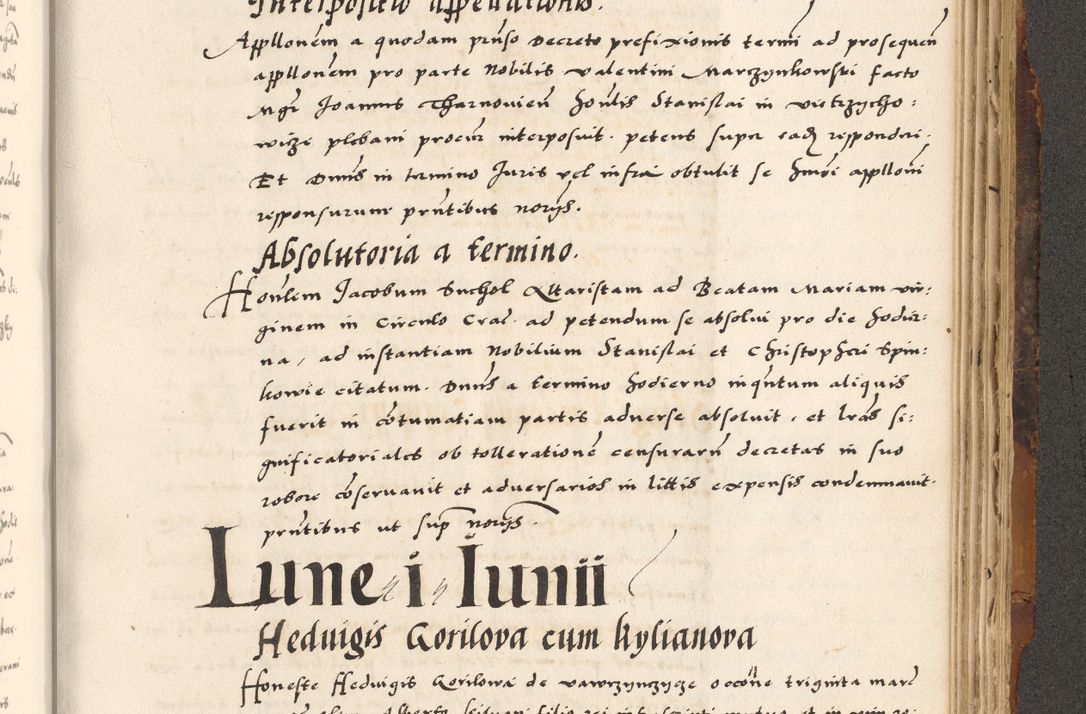 Interpositio appellationis.
Appllonem a quodam prnso decreto prefixionis termi ad prosequen
appllonem pro parte Nobilis Valentini Marczynkowski facto
Mgr Joannis Tharnovien honlis Stanislai in Vietrzycho:
wicze plebani procur interposuit. petens super eadz responderi.
Et Dnus in termino Juris vel infra obtulit se hmoi applloni
responsurum prntibus norijs.
Absolutoria a termino.
Honlem Jacobum Suchol Altaristam ad Beatam Mariam vir:
ginem in Circulo Crac. ad petendum se absolui pro die hodier:
na, ad instantiam Nobilium Stanislai et Christopheri Spin:
kowie citatum. Dnus a termino hodierno in qntum aliquis
fuerit in cotumatiam partis adverse absoluit. et lras si:
gnificatoriales ob tollerationem censurarum decretas in suo
robore coservauit et adversarios in littis expensis condemnauit.
prntibus ut supra norijs.
Lune i Iunii
Hedvigis Gorilova cum kylianova
Honeste Hedvigis Gorilowa de vawrzynczycze occone triginta marc